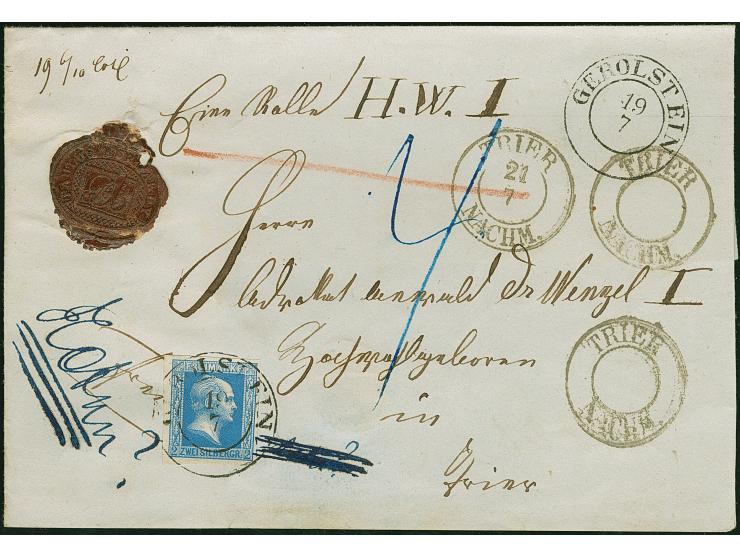 19 6/10 Loth
Eine Rolle H.W. I
GEROLSTEIN
19
7
TRIER
21
7
NACHM.
TRIER
NACHM.
Herrn
Advokat Anwald Dr Wenzel I
Hochwohlgeboren
in
Trier
TRIER
NACHM.
GEROLSTEIN
19
7
2 ZWEI SILBERGR. 2